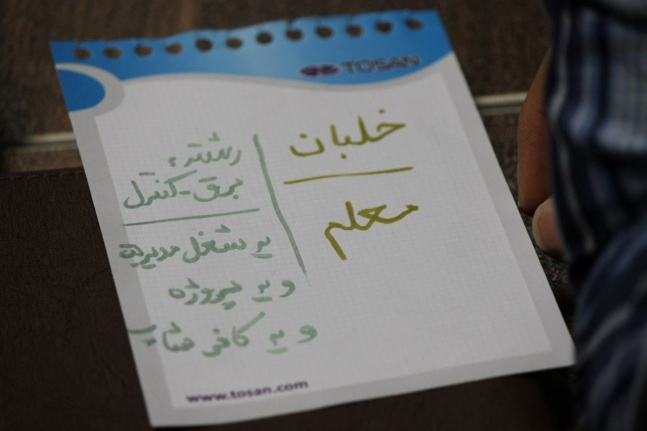 TOSAN
خلبان
معلم
رشته:
برق-کنترل
یه شغل مدیریه
و یه پروژه
و یه کافی شاپ
www.tosan.com